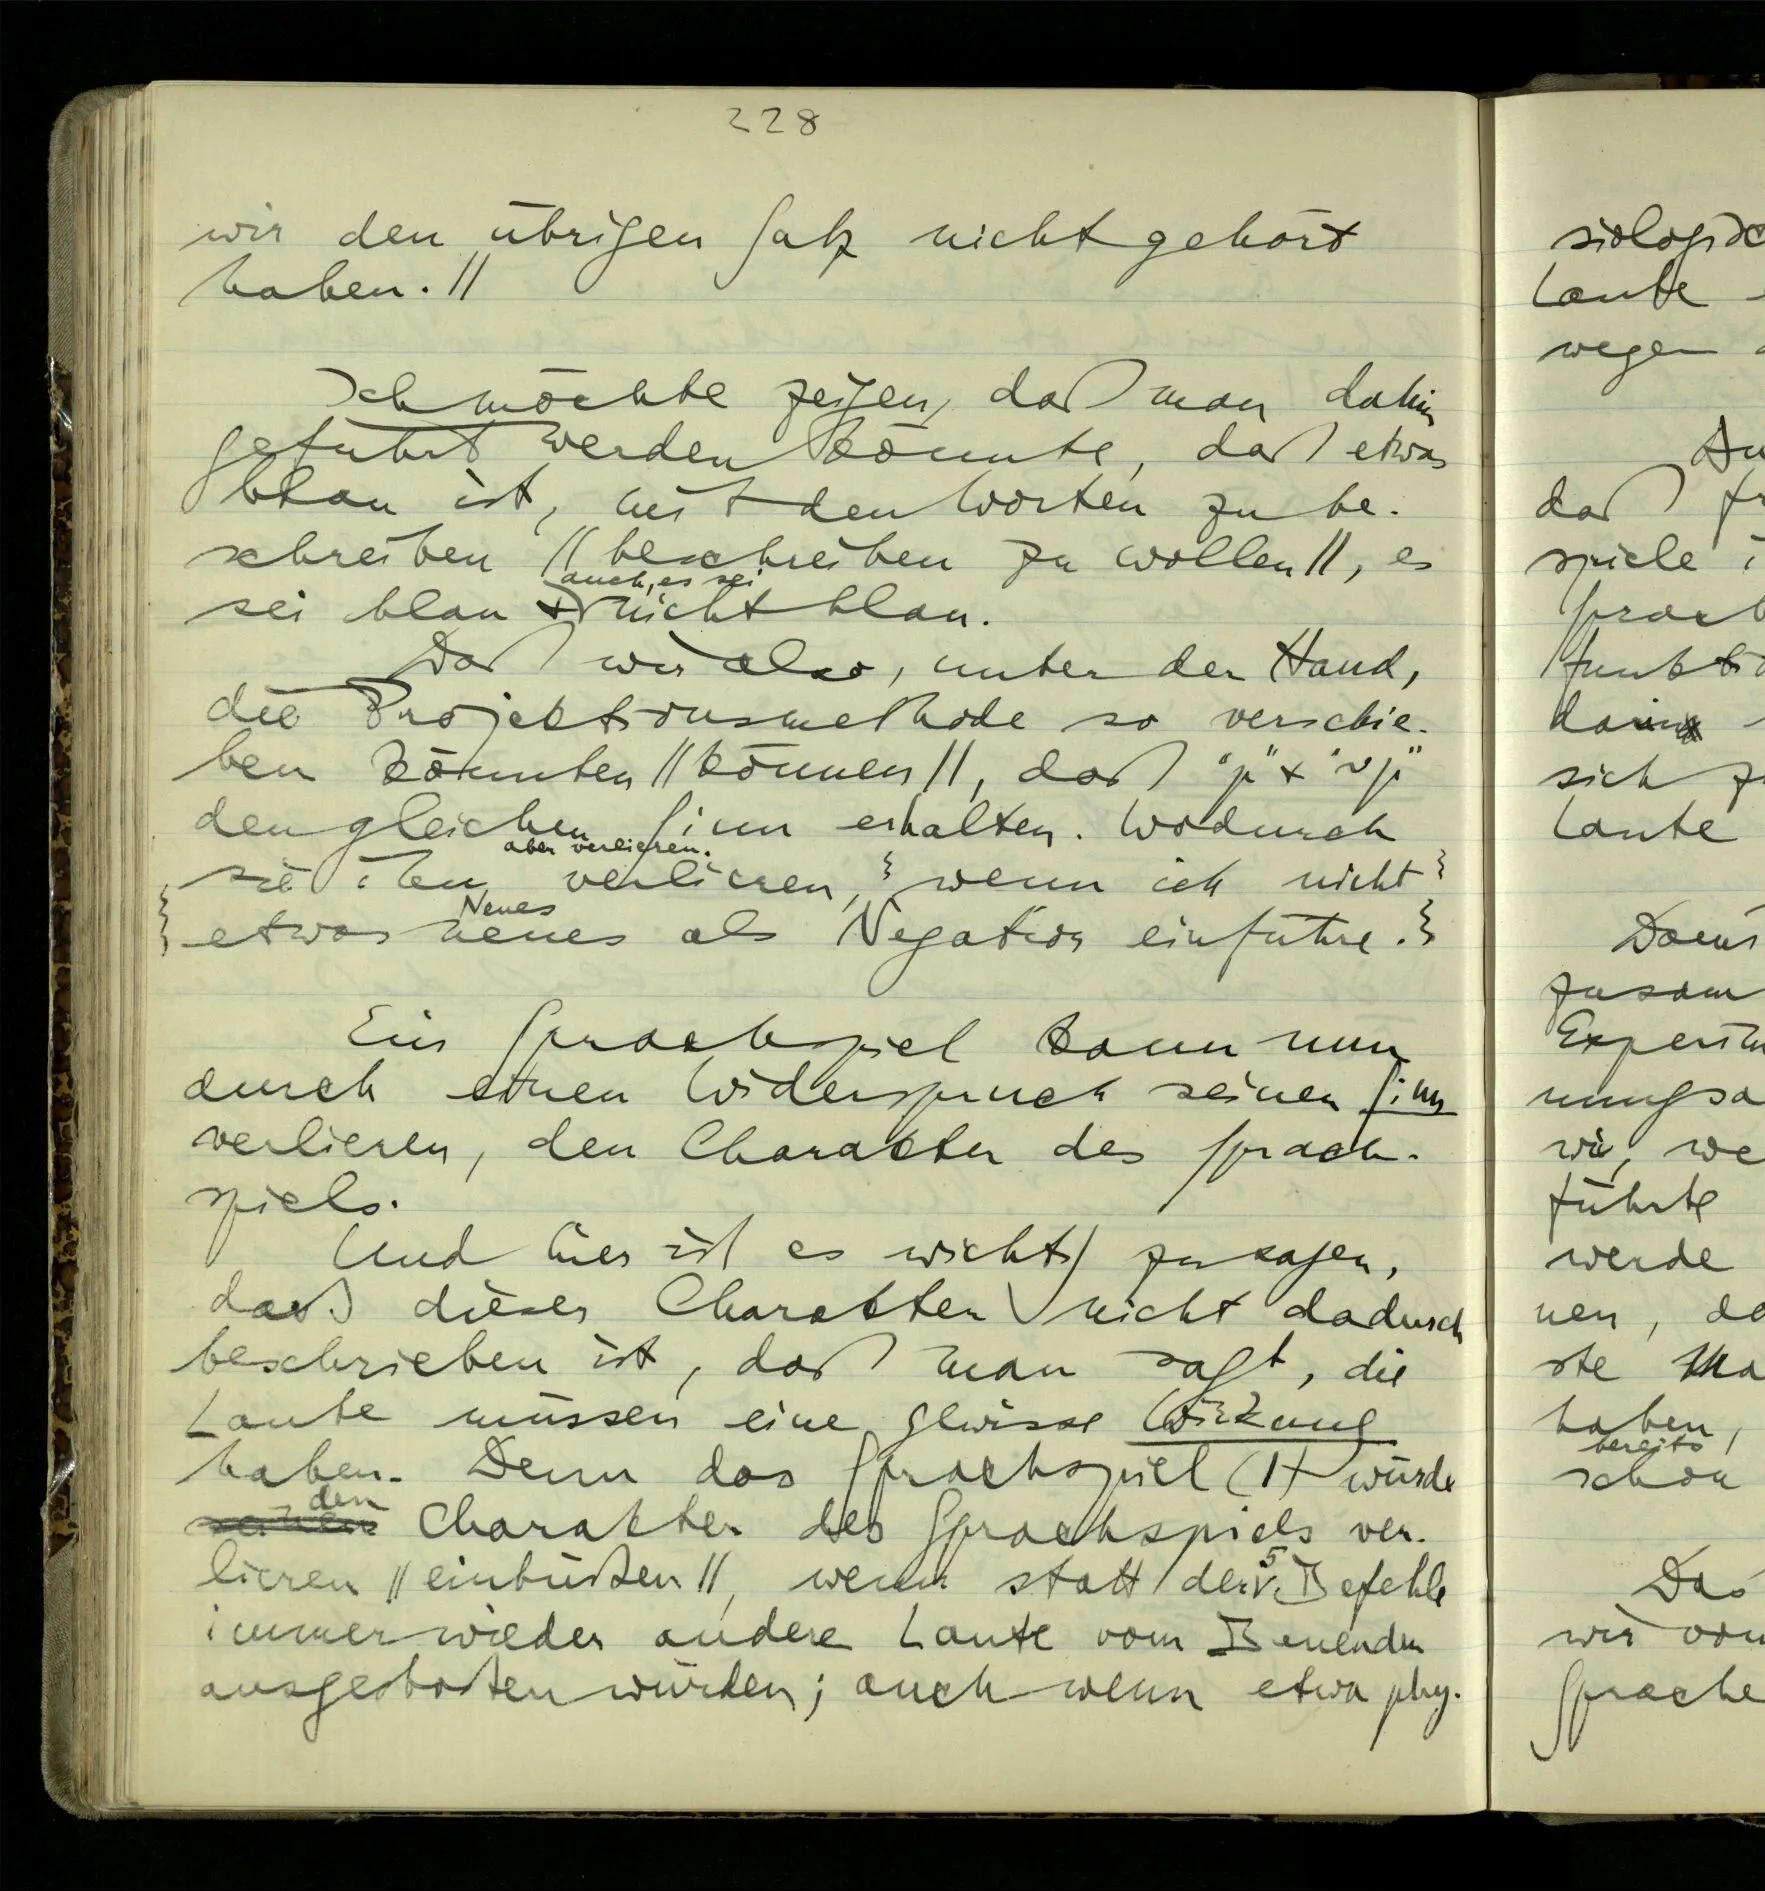 228
wir den übrigen Satz nicht gehört
haben. //
Ich möchte zeigen, daß man dahin
geführt werden könnte, daß etwas
blau ist, mit den Worten zu be-
schreiben // beschreiben zu wollen //, es
auch, es sei
sei blau & nicht blau.
Daß wir also, unter der Hand,
die Projektionsmethode so verschie-
ben könnten // können //, daß "p" & "~p"
den gleichen Sinn erhalten. Wodurch
aber verlieren.
sie ihn verlieren, wenn ich nicht
Neues
etwas neues als Negation einführe.
Ein Sprachspiel kann nun
durch einen Widerspruch seinen Sinn
verlieren, den Charakter des Sprach-
spiels.
Und hier ist es wichtig zu sagen,
daß dieser Charakter nicht dadurch
beschrieben ist, daß man sagt, die
Laute müssen eine gewisse Wirkung
haben. Denn das Sprachspiel (1) würde
den
seinen Charakter des Sprachspiels ver-
lieren // einbüßen //, wenn statt der 5 Befehle
immer wieder andere Laute vom Bauenden
ausgestoßen würden; auch wenn etwa phy-
siologisc
Laute
wegen
daß
spiele
sich
Laute
zusam
wir, we
führte
werde
nen, da
ste
haben,
bereits
schon
Das
wir von
Sprache